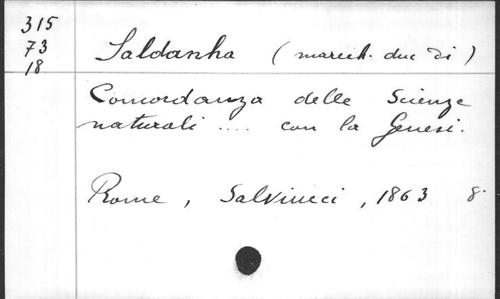 315
73
18
Saldanha (maréch. duc di)
Concordanza delle Scienze
naturali .... con la Genesi.
Rome, Salviucci, 1863 8°